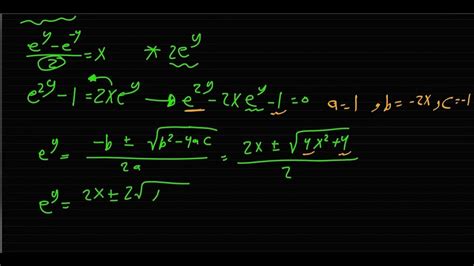 (e^y - e^-y)/2 = x * 2e^y
e^2y - 1 = 2xe^y → e^2y - 2xe^y - 1 = 0 a=1, b=-2x, c=-1
e^y = (-b ± √(b^2-4ac))/2a = (2x ± √(4x^2+4))/2
e^y = 2x ± 2√